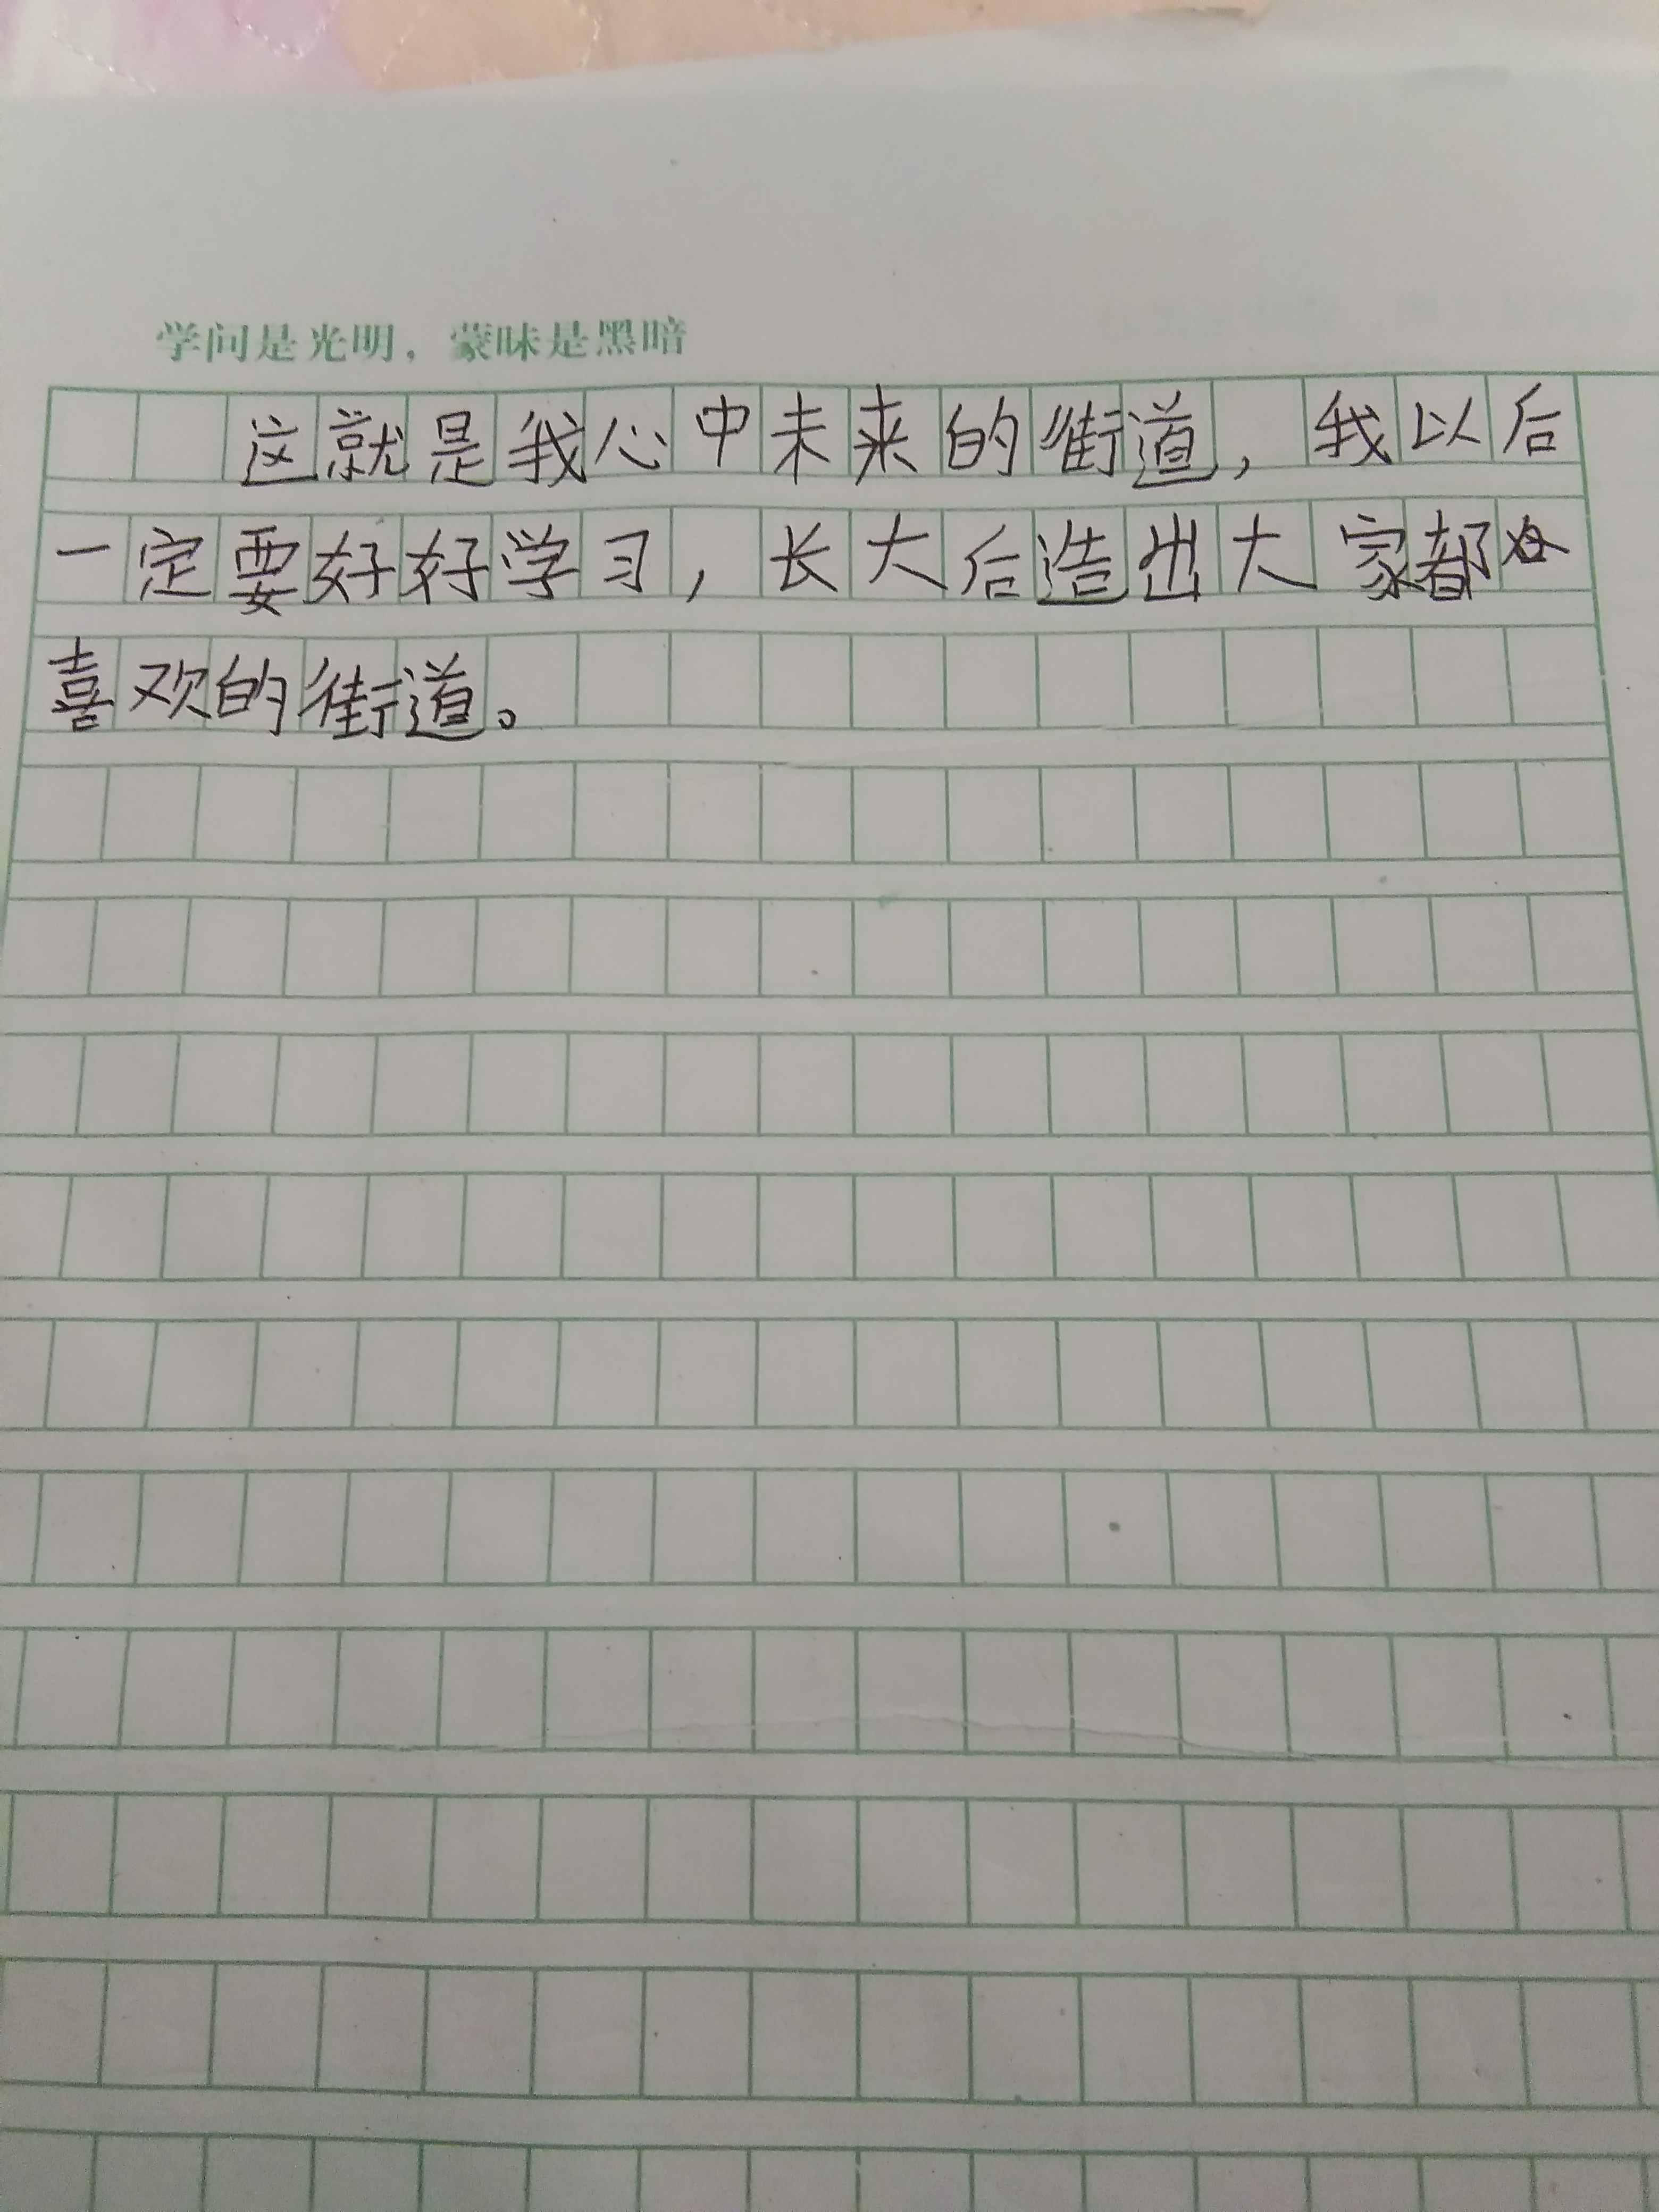 学问是光明，蒙昧是黑暗
这就是我心中未来的街道，我以后
一定要好好学习，长大后造出大家都
喜欢的街道。